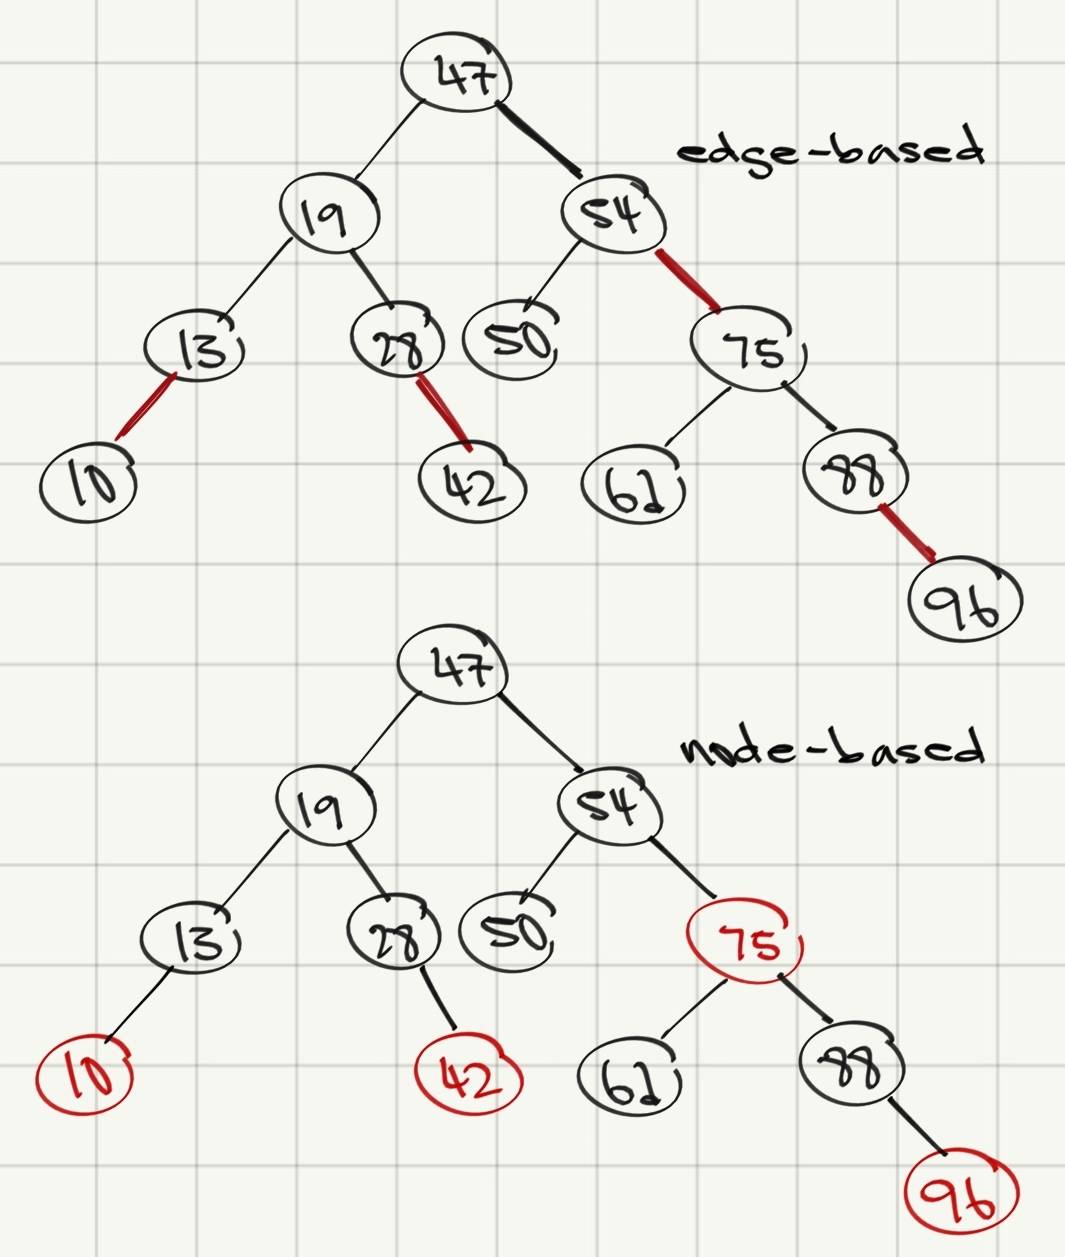 47
edge-based
19 54
13 28 50 75
10 42 61 88
96
47
node-based
19 54
13 28 50 75
10 42 61 88
96